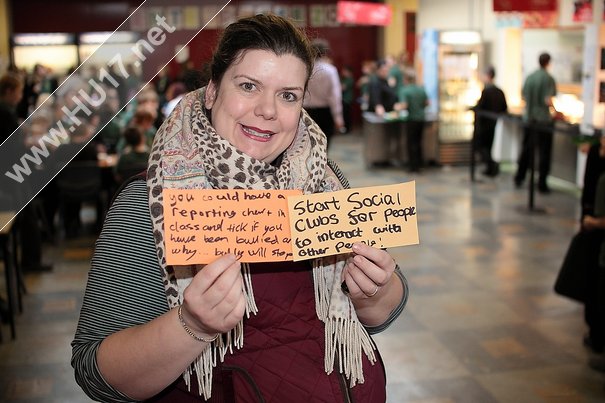 www.HU17.net
you could have a
reporting chart in
class and tick if you
have been bullied and
why... bully will stop
Start Social
Clubs for people
to interact with
other people!